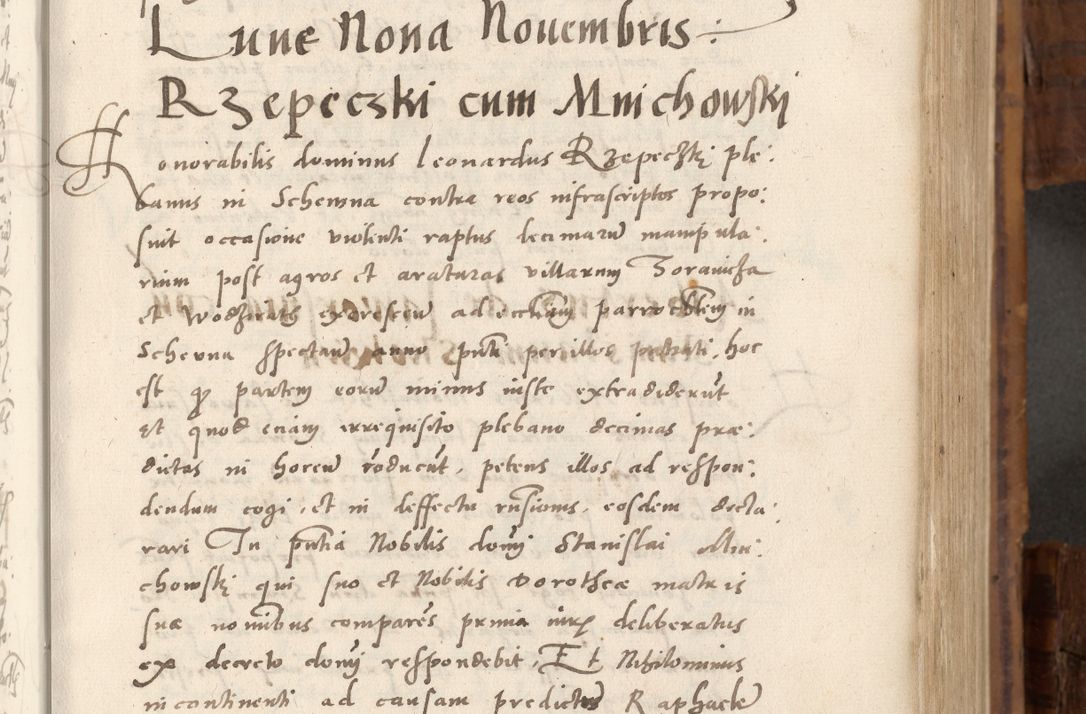 Lune Nona Nouembris
Rzepeczki cum Mnichowski
Honorabilis dominus Leonardus Rzepeczki ple:
banus in Schemna contra reos infrascriptos propo:
suit occasione violenti raptus decimarum manipula:
rium post agros et araturas villarum Zorawicza
et ad ecclesiam parrochialem in
Schevna spectan anno pnti per illos patrati, hoc
est qz partem eorum minus iuste extradiderunt
et quod etiam irrequisito plebano decimas præ:
dictas in horeum petens illos ad respon:
dendum cogi, et in deffectu rnsionis, eosdem decla:
rari In pntia Nobilis domi Stanislai Mni:
chowski qui suo et Nobilis Dorotheæ matris
suæ nominibus comparens deliberatus
ex decreto domi respondebit, Et Nihilominus
incontinenti ad causam predictum Raphaelem